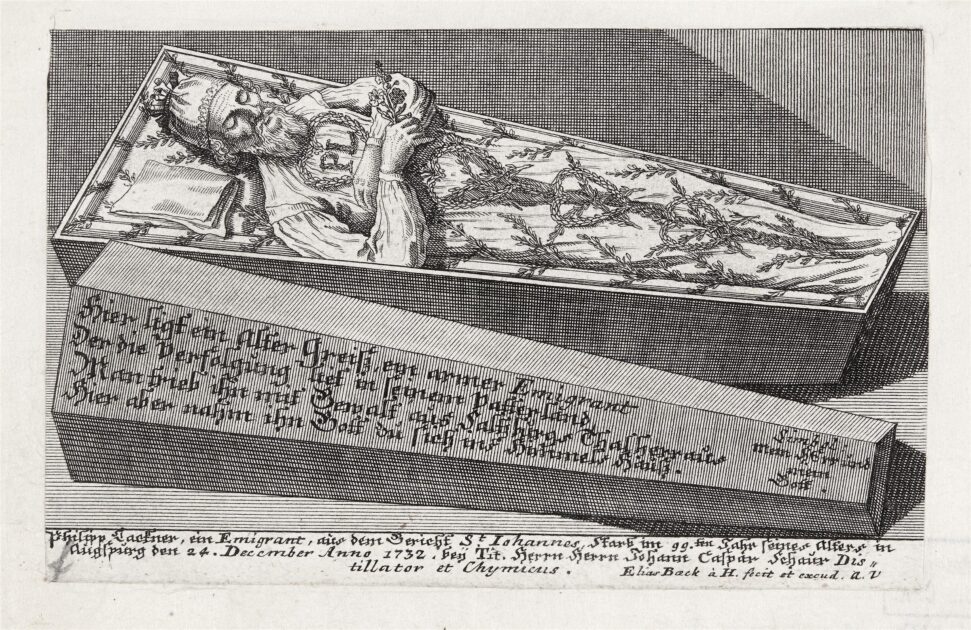 PL
Hier ligt ein Alter Greiß, ein armer Emigrant
Der die Verfolgung lief in seinem Vatterland,
Man trieb ihn mit Gewalt aus Saltzbergs Thal herraus
Hier aber nahm ihn Gott zu sich ins Himmels Hauß.
Simbol.
mein Herr und
mein
Gott.
Philipp Lackner, ein Emigrant, aus dem Gericht St. Iohannes, starb im 99.ten Jahr seines Alters in
Augspurg den 24. December Anno 1732. bey Tit. Herrn Herrn Johann Caspar Schaur Dis„
tillator et Chymicus.
Elias Bæck à H. fecit et excud. A. V